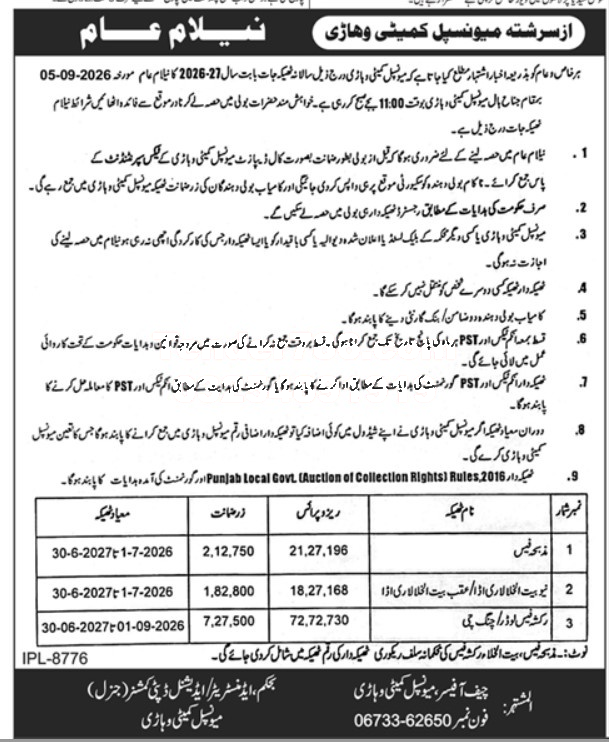 از سرشتہ میونسپل کمیٹی وہاڑی
نیلام عام
ہر خاص و عام کو بذریعہ اخبار اشتہار مطلع کیا جاتا ہے کہ میونسپل کمیٹی وہاڑی درج ذیل سالانہ ٹھیکہ جات بابت سال 27-2026 کا نیلام عام مورخہ 2026-09-05
بمقام جناح ہال میونسپل کمیٹی وہاڑی بوقت 11:00 بجے صبح کر رہی ہے۔ خواہش مند حضرات بولی میں حصہ لے کر نادر موقع سے فائدہ اٹھائیں شرائط نیلام
ٹھیکہ جات درج ذیل ہے۔
1. نیلام عام میں حصہ لینے کے لئے ضروری ہوگا کہ قبل از بولی بطور ضمانت بصورت کال ڈیپازٹ میونسپل کمیٹی وہاڑی کے ٹیکس سپرنٹنڈنٹ کے
پاس جمع کرائے۔ ناکام بولی دہندہ کو سکیورٹی موقع پر ہی واپس کر دی جائیگی اور کامیاب بولی دہندگان کی زرضمانت ٹھیکہ میونسپل کمیٹی وہاڑی میں جمع رہے گی۔
2. صرف حکومت کی ہدایات کے مطابق رجسٹرڈ ٹھیکیدار ہی بولی میں حصہ لے سکیں گے۔
3. میونسپل کمیٹی وہاڑی یا کسی دیگر محکمہ کے بلیک لسٹڈ یا اعلان شدہ دیوالیہ یا کسی باقیدار کو یا ایسا ٹھیکیدار جس کی کارکردگی اچھی نہ رہی ہو نیلام میں حصہ لینے کی
اجازت نہ ہوگی۔
4. ٹھیکہ دار ٹھیکہ کسی دوسرے شخص کو منتقل نہیں کر سکے گا۔
5. کامیاب بولی دہندہ دو ضامن/بنک گارنٹی دینے کا پابند ہوگا۔
6. قسط بمعہ انکم ٹیکس اور PST ہر ماہ کی پانچ تاریخ تک جمع کرانا ہوگی۔ قسط بروقت جمع نہ کرانے کی صورت میں مروجہ قوانین و ہدایات حکومت کے تحت کاروائی
عمل میں لائی جائے گی۔
7. ٹھیکہ دار انکم ٹیکس اور PST گورنمنٹ کی ہدایات کے مطابق ادا کرنے کا پابند ہوگا یا گورنمنٹ کی ہدایات کے مطابق انکم ٹیکس اور PST کا معاملہ حل کرنے کا
پابند ہوگا۔
8. دوران معیاد ٹھیکہ اگر میونسپل کمیٹی وہاڑی نے اپنے شیڈول میں کوئی اضافہ کیا تو ٹھیکہ دار اضافی رقم میونسپل وہاڑی میں جمع کرانے کا پابند ہوگا جس کا تعین میونسپل
کمیٹی وہاڑی کرے گی۔
9. ٹھیکہ دار Punjab Local Govt. (Auction of Collection Rights) Rules,2016 اور گورنمنٹ کی آمدہ ہدایات کا پابند ہوگا۔
نمبر شمار نام ٹھیکہ ریزو پرائس زرضمانت معیاد ٹھیکہ
1 مذبحہ فیس 21,27,196 2,12,750 1-7-2026 تا 30-6-2027
2 نیو بیت الخلا لاری اڈا/عقب بیت الخلا لاری اڈا 18,27,168 1,82,800 1-7-2026 تا 30-6-2027
3 رکشہ فیس لوڈر/چنگ چی 72,72,730 7,27,500 01-09-2026 تا 30-06-2027
نوٹ:۔ مذبحہ فیس، بیت الخلاء و رکشہ فیس کی محکمانہ سلف ریکوری ٹھیکیدار کی رقم ٹھیکہ میں شامل کر دی جائے گی۔
IPL-8776
المشتہر: چیف آفیسر، میونسپل کمیٹی وہاڑی
فون نمبر 06733-62650
بحکم، ایڈمنسٹریٹر/ایڈیشنل ڈپٹی کمشنر (جنرل)
میونسپل کمیٹی وہاڑی